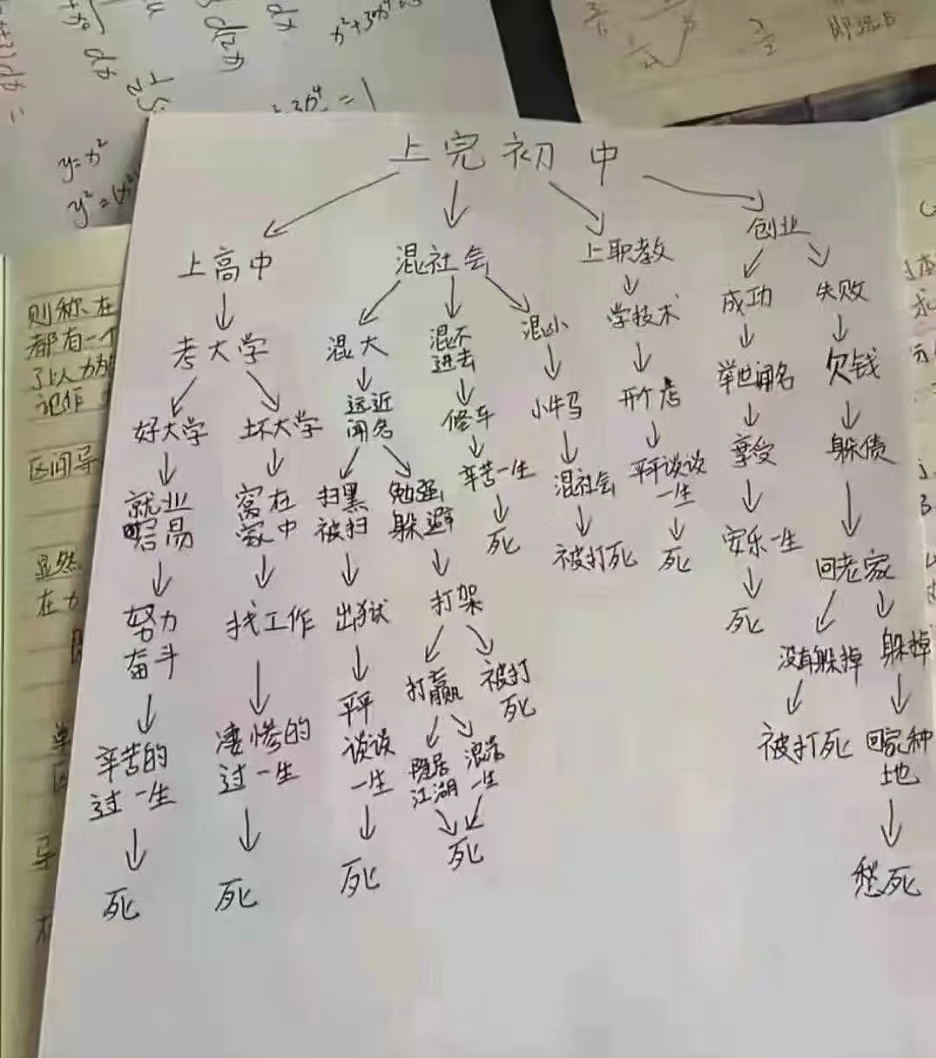 y=x²
则称在
都有一个
记作
区间导
显然
在
即选B
上完初中
上高中
混社会
上职教
创业
考大学
混大
混不
进去
混小
学技术
成功
失败
好大学
坏大学
远近
闻名
修车
小牛马
开个店
举世闻名
欠钱
就业
容易
窝在
家中
扫黑
被扫
勉强
躲避
辛苦一生
混社会
平平谈谈
一生
享受
躲债
死
被打死
死
安乐一生
回老家
努力
奋斗
找工作
出狱
打架
死
没有躲掉
躲掉
辛苦的
过一生
凄惨的
过一生
平平
谈谈
一生
打赢
被打
死
隐居
江湖
流落
一生
被打死
回家种
地
死
死
死
死
愁死